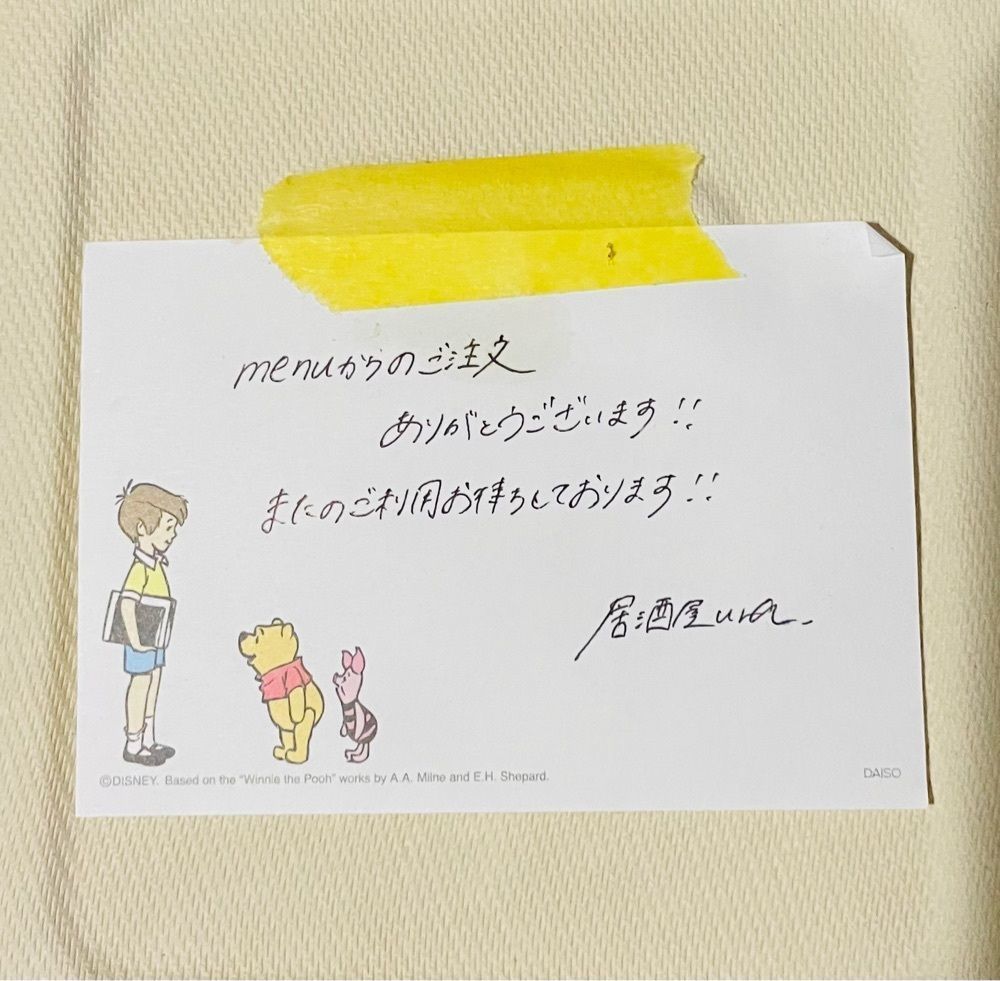 menuからのご注文
ありがとうございます!!
またのご利用お待ちしております!!
居酒屋ura.
©DISNEY. Based on the "Winnie the Pooh" works by A.A. Milne and E.H. Shepard.
DAISO